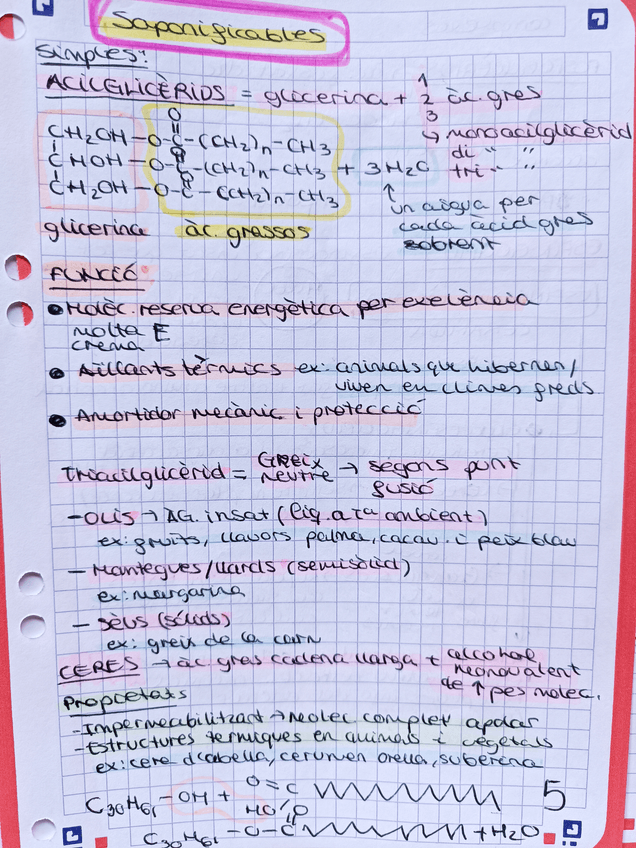 Saponificables
Simples:
ACILGLICÈRIDS = glicerina + 1 2 3 àc. gres
↳ monoacilglicèrid
di " "
tri " "
CH2OH—O—C(=O)—(CH2)n—CH3
CHOH—O—C(=O)—(CH2)n—CH3 + 3H2O
CH2OH—O—C(=O)—(CH2)n—CH3
un aigua per
cada àcid gres
sobrent
glicerina àc. grassos
FUNCIÓ:
• Molèc. reserva energètica per exelència
molta E
crema
• Aïllants tèrmics ex: animals que hibernen/
viven en climes freds
• Amortidor mecànic i protecció
Triacilglicèrid = Greix neutre → segons punt
fusió
- OLIS → AG. insat (líq. a Tª ambient)
ex: fruits, llavors palma, cacau i peix blau
- Mantegues/llards (semisòlid)
ex: margarina
- sèus (sólids)
ex: greix de la carn
CERES → àc. gres cadena llarga + alcohol
monovalent
de ↑ pes molec.
Propietats
- Impermeabilitzant → molec complet apolar
- Estructures termiques en animals i vegetals
ex: cere d'abella, cerumen orella, suberina
C30H61—OH + O=C HO
C30H61—O—C=O + H2O
5